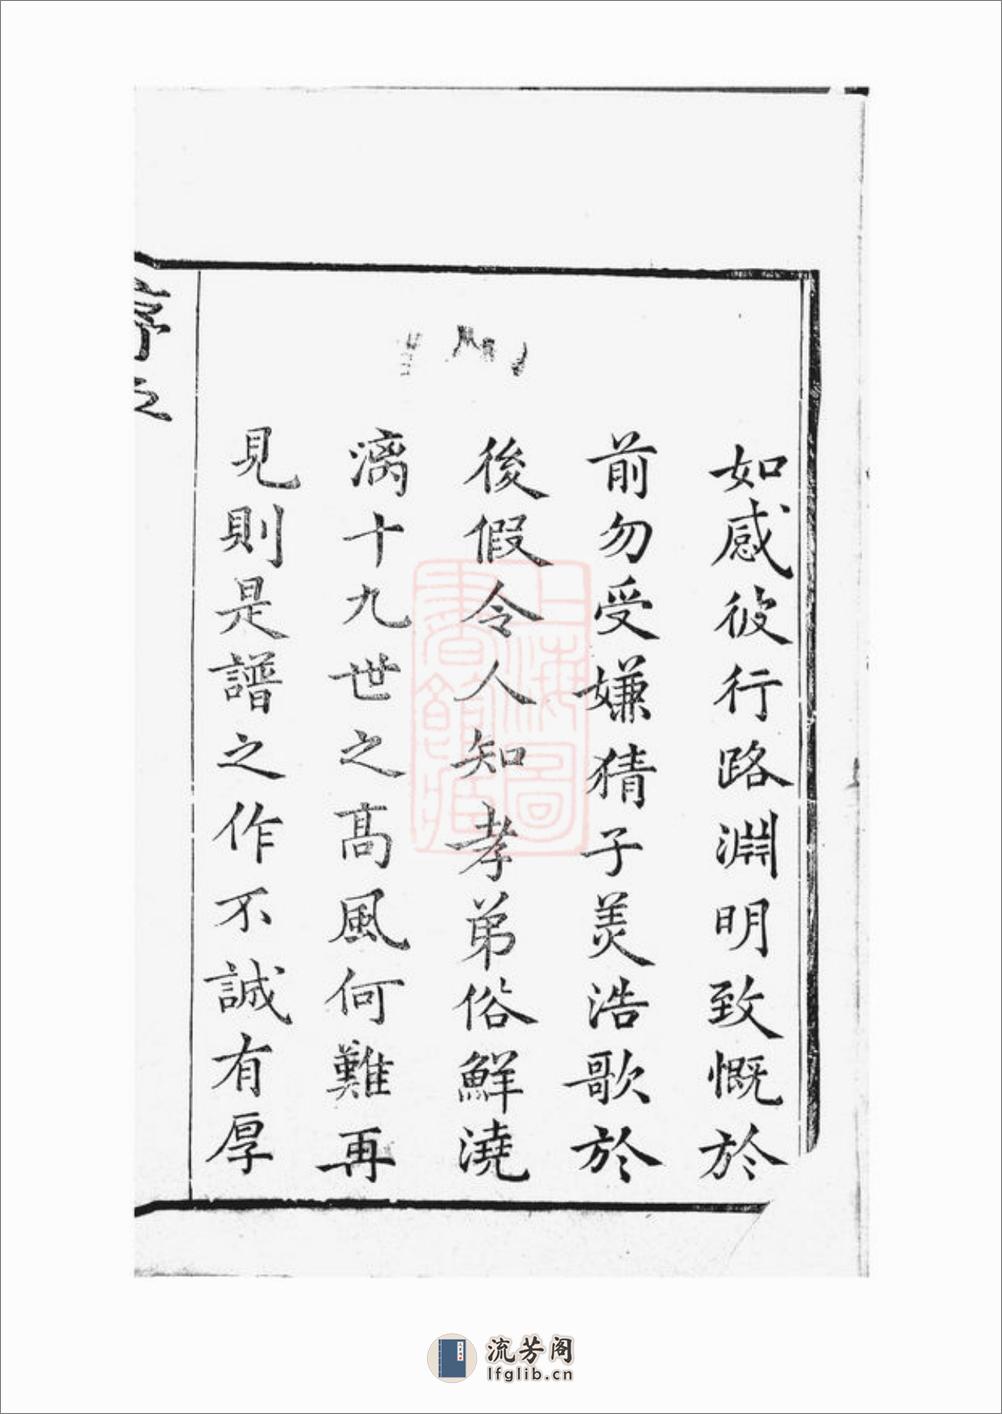 如感彼行路淵明致慨於
前勿受嫌猜子美浩歌於
後假令人知孝弟俗鮮澆
漓十九世之高風何難再
見則是譜之作不誠有厚
序之
上海圖
書館藏
流芳阁
lfglib.cn